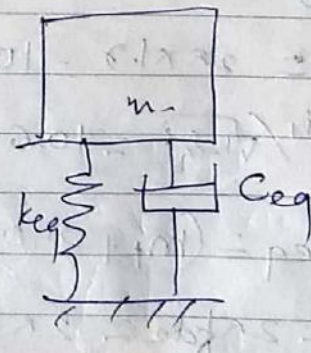 m
keq
Ceq